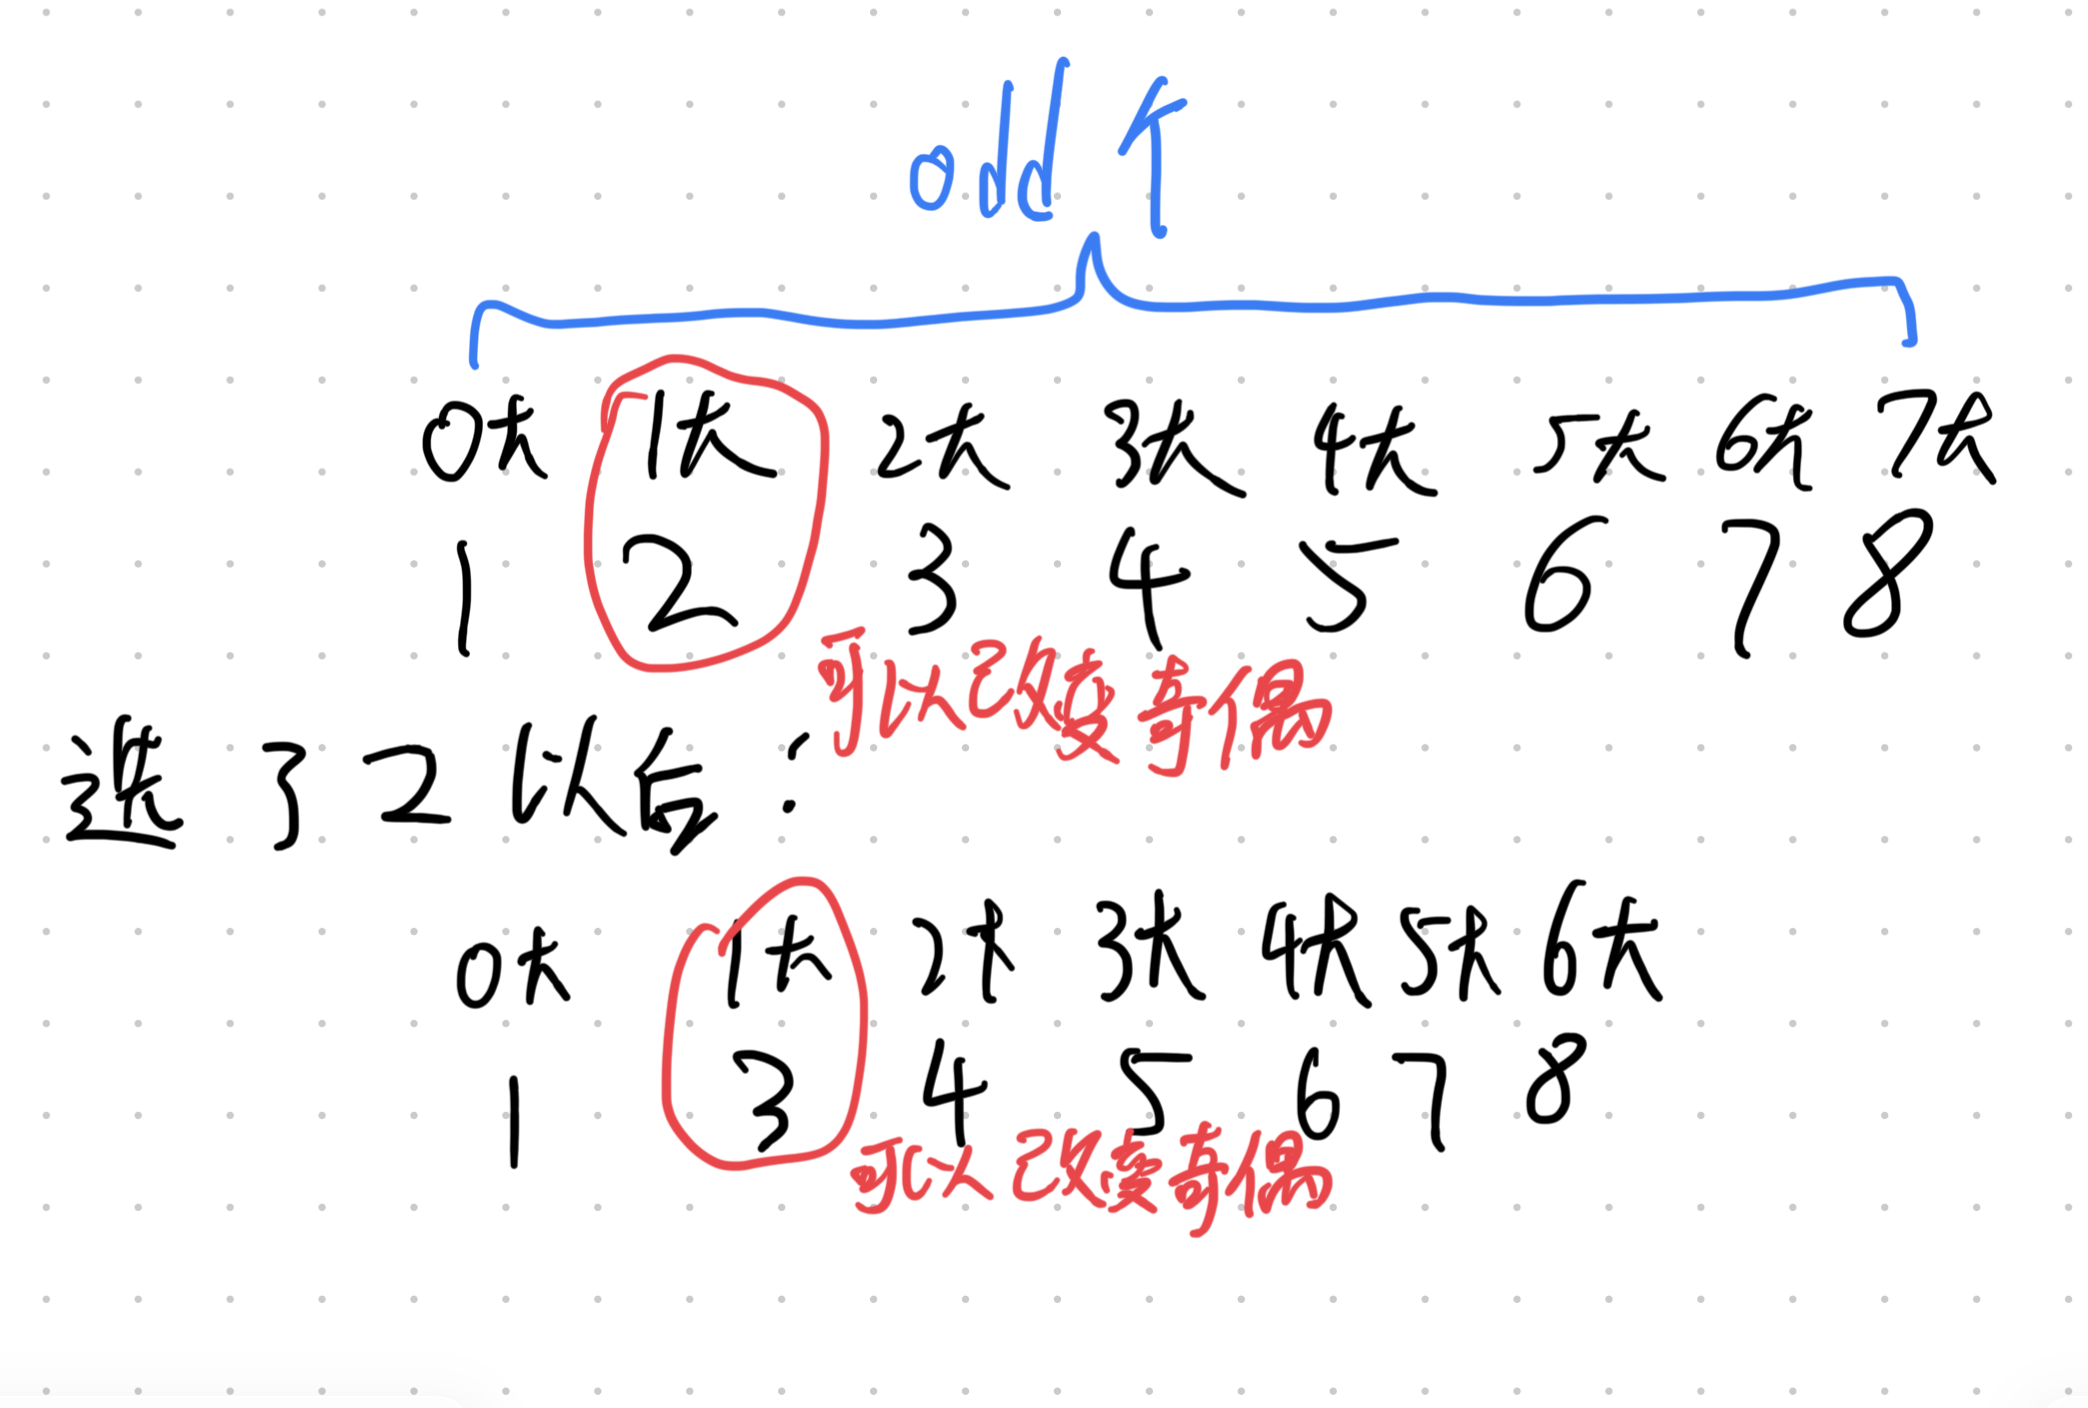 odd 个
0大 1大 2大 3大 4大 5大 6大 7大
1 2 3 4 5 6 7 8
可以改变奇偶
选了2以后：
0大 1大 2大 3大 4大 5大 6大
1 3 4 5 6 7 8
可以改变奇偶